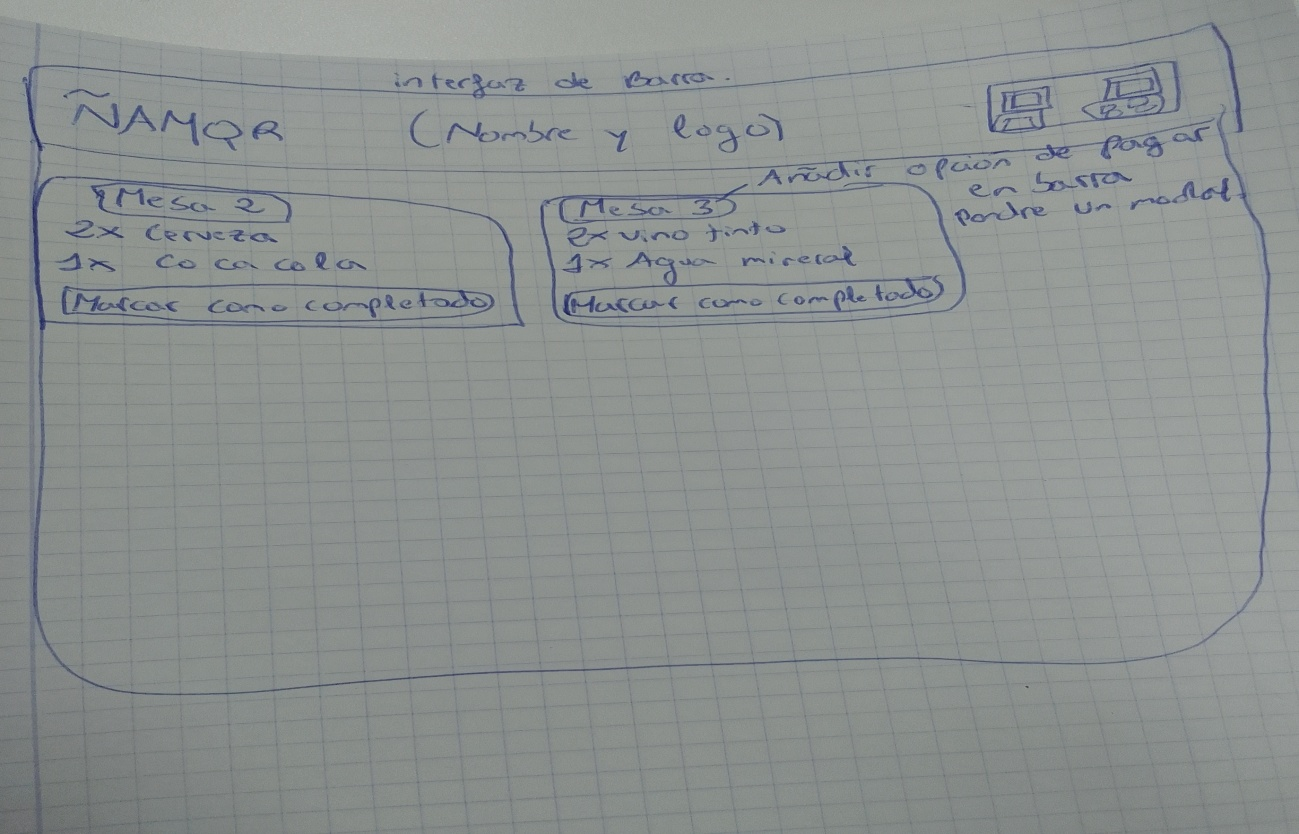 interfaz de Barra.
ÑAMQR (Nombre y logo)
Añadir opción de Pagar
en barra
Pondre un modal.
Mesa 2
2x Cerveza
1x Coca cola
Marcar como completado
Mesa 3
2x vino tinto
1x Agua mineral
Marcar como completado